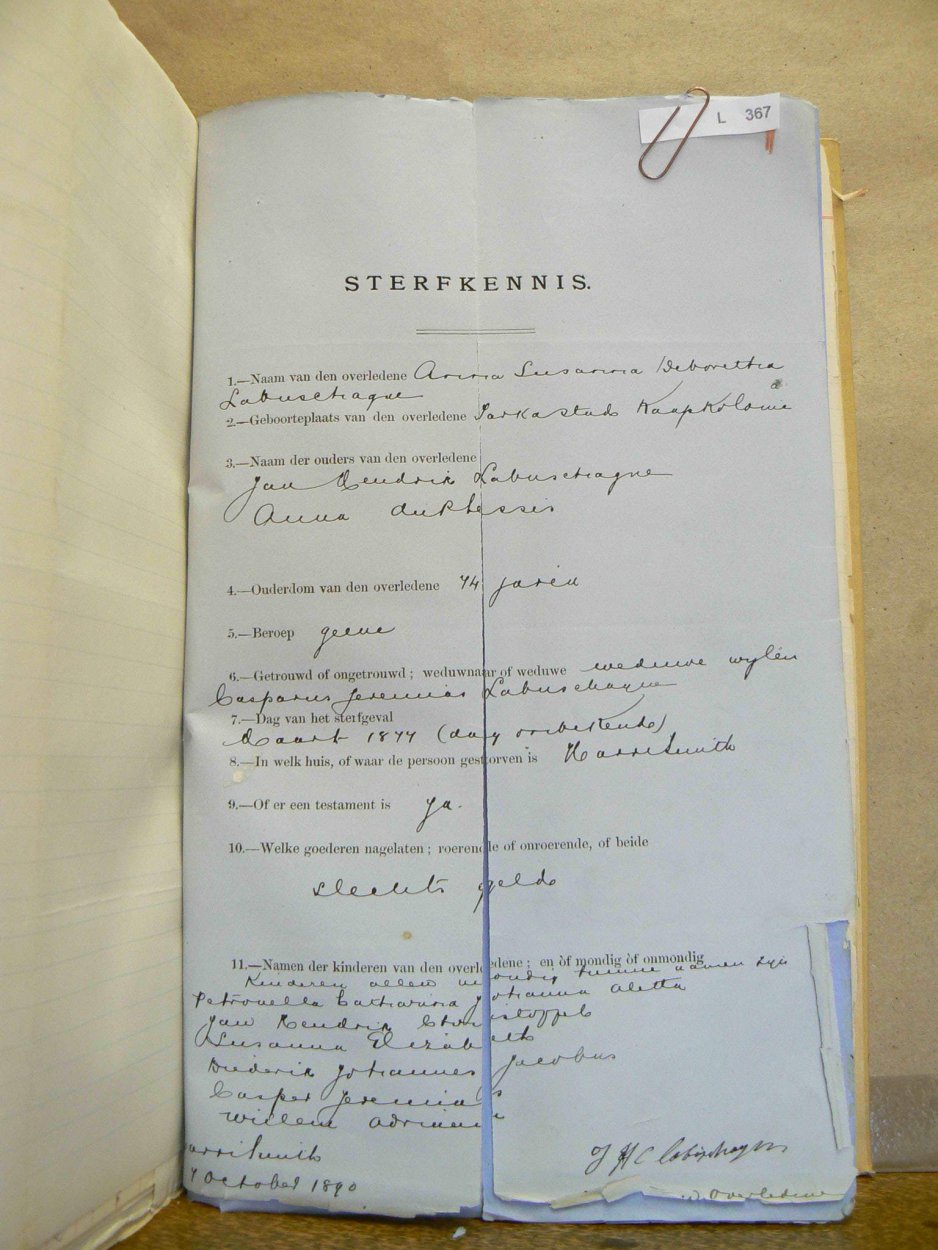 L 367
STERFKENNIS.
1.—Naam van den overledene Anna Susanna Deborettha
Labuschagne
2.—Geboorteplaats van den overledene Tarkastad Kaapkolonie
3.—Naam der ouders van den overledene
Jan Hendrik Labuschagne
Anna du Plessis
4.—Ouderdom van den overledene 74 jaren
5.—Beroep geene
6.—Getrouwd of ongetrouwd; weduwnaar of weduwe weduwe wylen
Casparus Jeremias Labuschagne
7.—Dag van het sterfgeval
Maart 1877 (dag onbekend)
8.—In welk huis, of waar de persoon gestorven is Harrismith
9.—Of er een testament is ja.
10.—Welke goederen nagelaten; roerende of onroerende, of beide
slechts geld
11.—Namen der kinderen van den overledene; en òf mondig òf onmondig
Kinderen allen mondig hunne namen zyn
Petronella Catharina Johanna Aletta
Jan Hendrik Christoffel
Susanna Elizabeth
Diederik Johannes Jacobus
Casper Jeremias
Willem Adriaan
arrismith
7 October 1890
J H C Labuschagne
Overledene